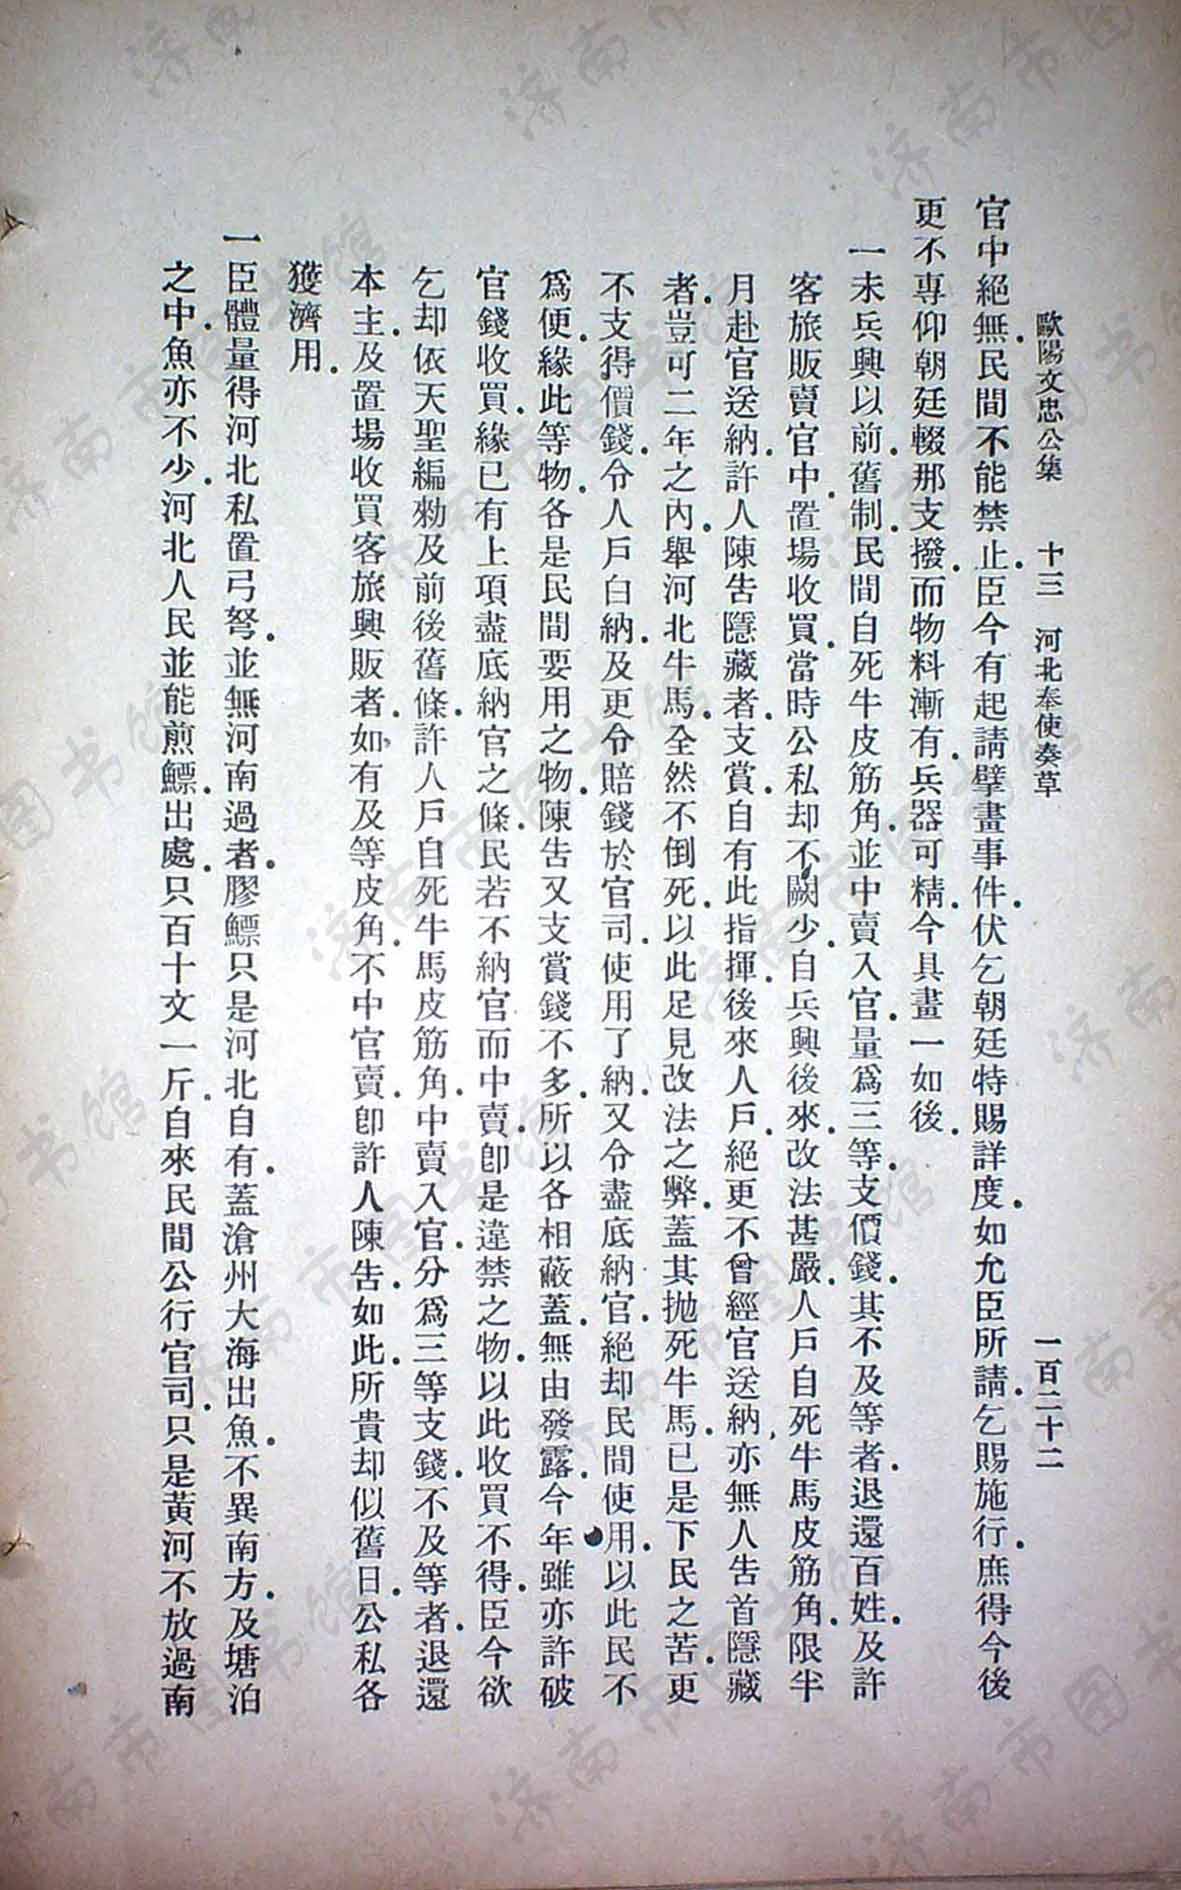 歐陽文忠公集　十三　河北奉使奏草　一百二十二
官中絕無.民間不能禁止.臣今有起請擘畫事件.伏乞朝廷特賜詳度.如允臣所請.乞賜施行.庶得今後
更不專仰朝廷輟那支撥.而物料漸有.兵器可精.今具畫一如後.
一未兵興以前.舊制.民間自死牛皮筋角.並中賣入官.量爲三等.支價錢.其不及等者.退還百姓.及許
客旅販賣.官中置場收買.當時公私却不闕少.自兵興後來.改法甚嚴.人戶自死牛馬皮筋角.限半
月赴官送納.許人陳告隱藏者.支賞.自有此指揮.後來人戶.絕更不曾經官送納.亦無人告首隱藏
者.豈可二年之內.舉河北牛馬.全然不倒死.以此足見改法之弊.蓋其拋死牛馬.已是下民之苦.更
不支得價錢.令人戶白納.及更令賠錢於官司.使用了納.又令盡底納官.絕却民間使用.以此民不
爲便.緣此等物.各是民間要用之物.陳告又支賞錢不多.所以各相蔽蓋.無由發露.今年雖亦許破
官錢收買.緣已有上項盡底納官之條.民若不納官而中賣.卽是違禁之物.以此收買不得.臣今欲
乞却依天聖編勑及前後舊條.許人戶自死牛馬皮筋角.中賣入官.分爲三等支錢.不及等者.退還
本主.及置場收買客旅興販者.如有及等皮角.不中官賣.卽許人陳告.如此.所貴却似舊日.公私各
獲濟用.
一臣體量得河北私置弓弩.並無河南過者.膠鰾只是河北自有.蓋滄州大海出魚.不異南方.及塘泊
之中.魚亦不少.河北人民並能煎鰾.出處.只百十文一斤.自來民間公行.官司只是黃河不放過南
济南市图书馆